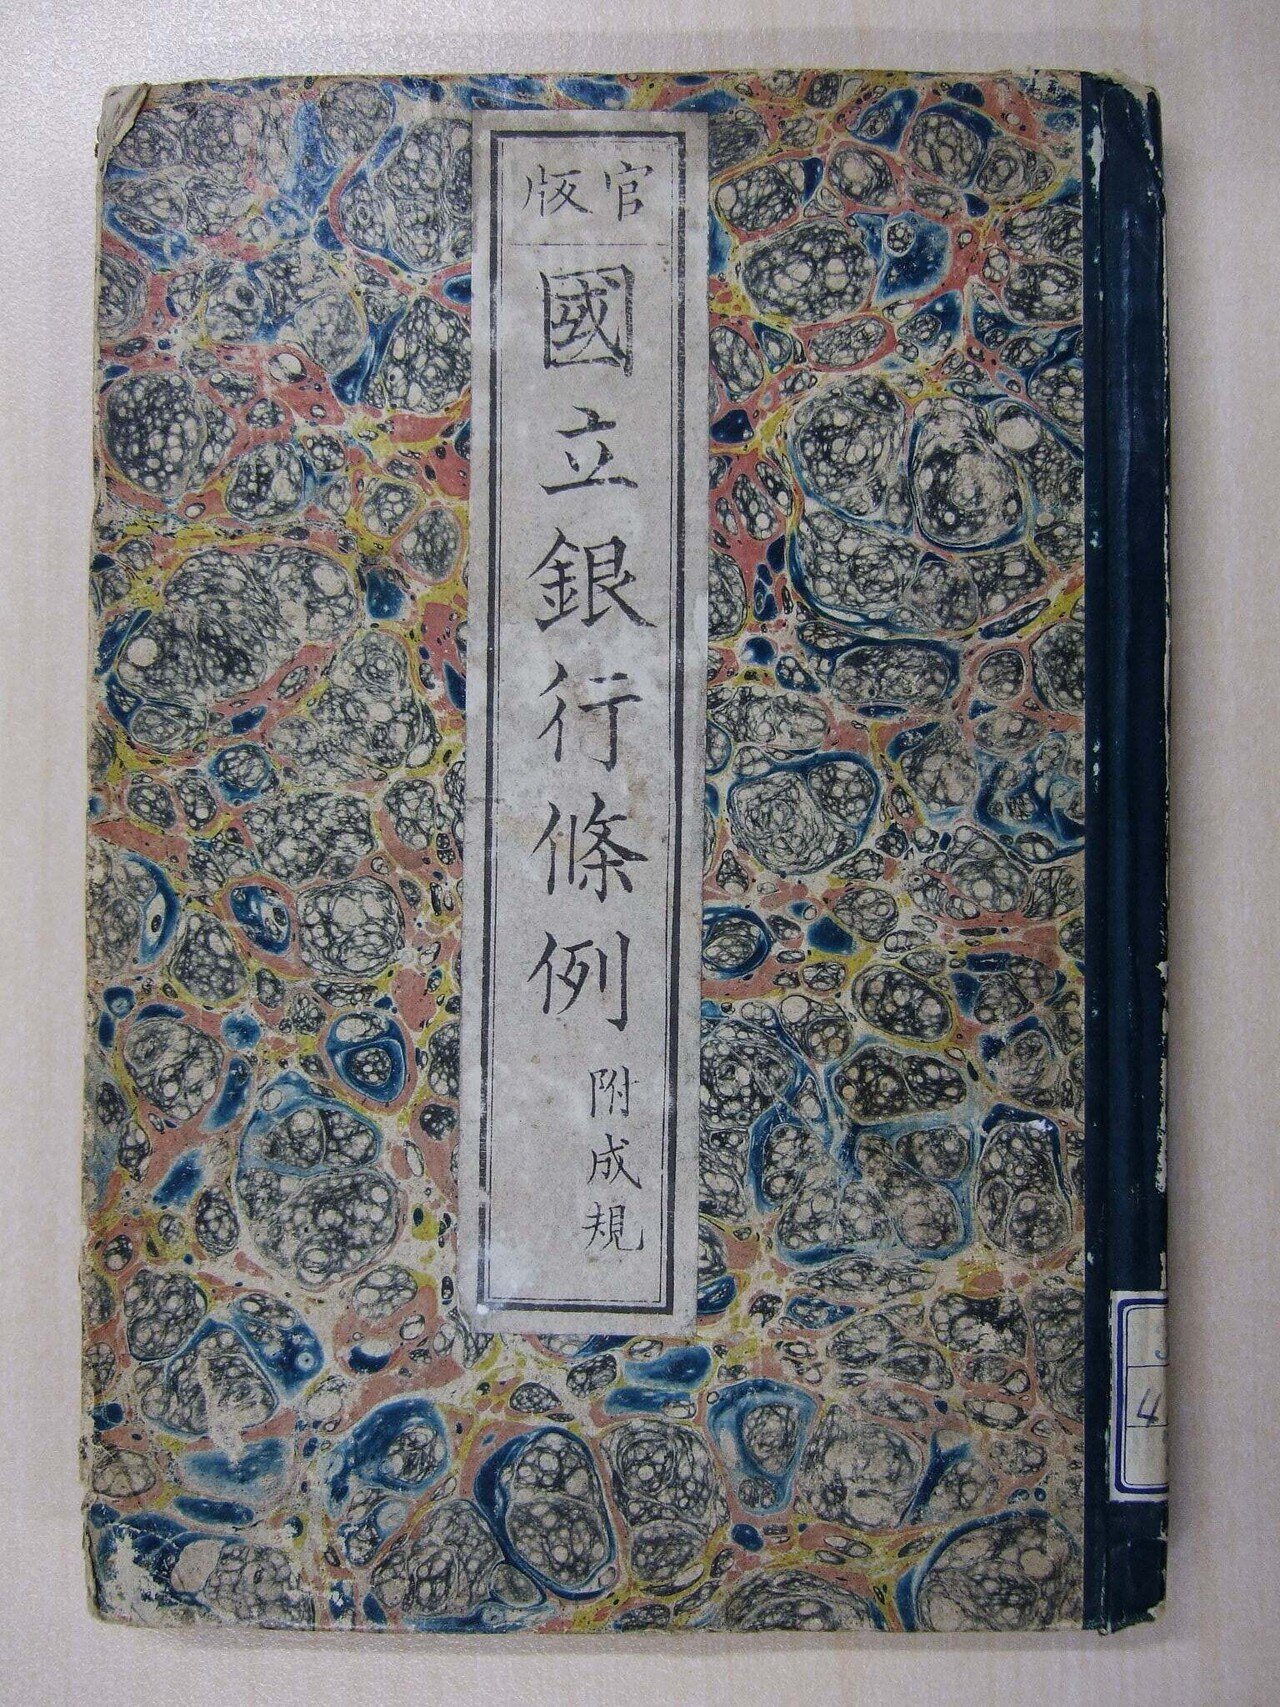 官版
國立銀行條例
附成規
4